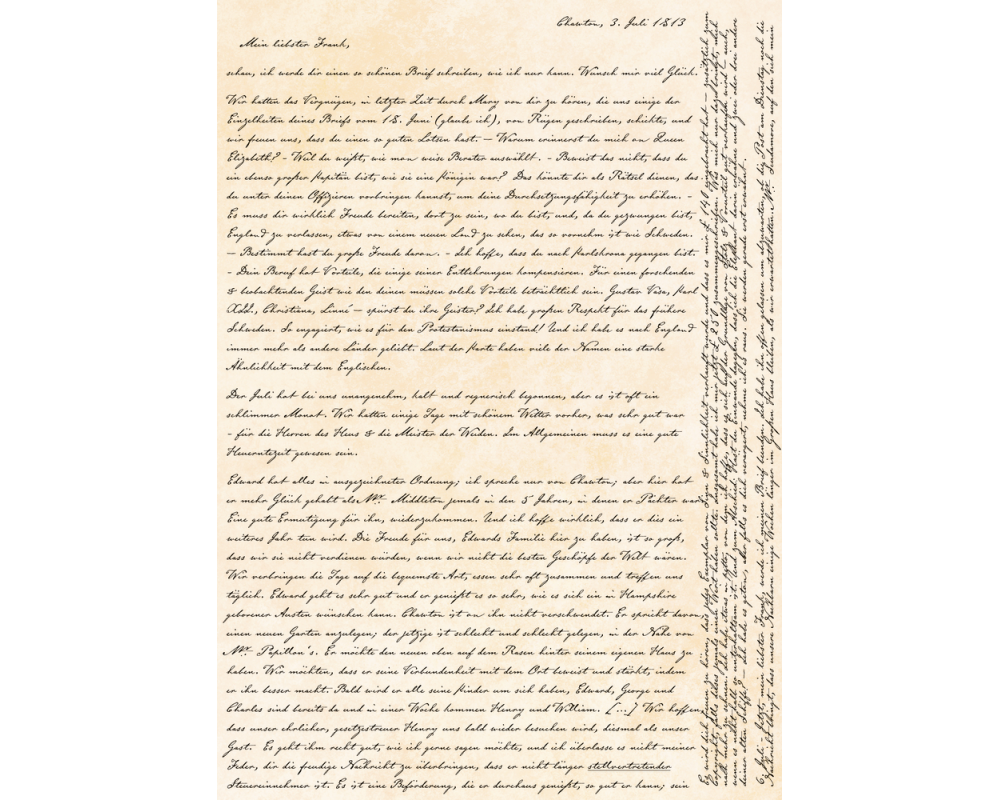 Chawton, 3. Juli 1813
Mein liebster Frank,
schau, ich werde dir einen so schönen Brief schreiben, wie ich nur kann. Wünsch mir viel Glück.
Wir hatten das Vergnügen, in letzter Zeit durch Mary von dir zu hören, die uns einige der
Einzelheiten deines Briefs vom 18. Juni (glaube ich), von Rügen geschrieben, schickte, und
wir freuen uns, dass du einen so guten Lotsen hast. — Warum erinnerst du mich an Queen
Elizabeth? - Weil du weißt, wie man weise Berater auswählt. - Beweist das nicht, dass du
ein ebenso großer Kapitän bist, wie sie eine Königin war? Das könnte dir als Rätsel dienen, das
du unter deinen Offizieren vorbringen kannst, um deine Durchsetzungsfähigkeit zu erhöhen. -
Es muss dir wirklich Freude bereiten, dort zu sein, wo du bist, und, da du gezwungen bist,
England zu verlassen, etwas von einem neuen Land zu sehen, das so vornehm ist wie Schweden.
— Bestimmt hast du große Freude daran. - Ich hoffe, dass du nach Karlskrona gegangen bist.
- Dein Beruf hat Vorteile, die einige seiner Entbehrungen kompensieren. Für einen forschenden
& beobachtenden Geist wie den deinen müssen solche Vorteile beträchtlich sein. Gustav Vasa, Karl
XII., Christiana, Linné — spürst du ihre Geister? Ich habe großen Respekt für das frühere
Schweden. So engagiert, wie es für den Protestanismus einstand! Und ich habe es nach England
immer mehr als andere Länder geliebt. Laut der Karte haben viele der Namen eine starke
Ähnlichkeit mit dem Englischen.
Der Juli hat bei uns unangenehm, kalt und regnerisch begonnen, aber es ist oft ein
schlimmer Monat. Wir hatten einige Tage mit schönem Wetter vorher, was sehr gut war
- für die Herren des Heus & die Meister der Weiden. Im Allgemeinen muss es eine gute
Heuerntezeit gewesen sein.
Edward hat alles in ausgezeichneter Ordnung; ich spreche nur von Chawton; aber hier hat
er mehr Glück gehabt als Mr. Middleton jemals in den 5 Jahren, in denen er Pächter war.
Eine gute Ermutigung für ihn, wiederzukommen. Und ich hoffe wirklich, dass er dies ein
weiteres Jahr tun wird. Die Freude für uns, Edwards Familie hier zu haben, ist so groß,
dass wir sie nicht verdienen würden, wenn wir nicht die besten Geschöpfe der Welt wären.
Wir verbringen die Tage auf die bequemste Art, essen sehr oft zusammen und treffen uns
täglich. Edward geht es sehr gut und er genießt es so sehr, wie es sich ein in Hampshire
geborener Austen wünschen kann. Chawton ist an ihn nicht verschwendet. Er spricht davon,
einen neuen Garten anzulegen; der jetzige ist schlecht und schlecht gelegen, in der Nähe von
Mr. Papillon's. Er möchte den neuen oben auf dem Rasen hinter seinem eigenen Haus zu
haben. Wir möchten, dass er seine Verbundenheit mit dem Ort beweist und stärkt, indem
er ihn besser macht. Bald wird er alle seine Kinder um sich haben, Edward, George und
Charles sind bereits da und in einer Woche kommen Henry und William. [...] Wir hoffen,
dass unser ehrlicher, gesetzestreuer Henry uns bald wieder besuchen wird, diesmal als unser
Gast. Es geht ihm recht gut, wie ich gerne sagen möchte, und ich überlasse es nicht meiner
Feder, dir die freudige Nachricht zu überbringen, dass er nicht länger stellvertretender
Steuereinnehmer ist. Es ist eine Beförderung, die er durchaus genießt, so gut er kann; sein